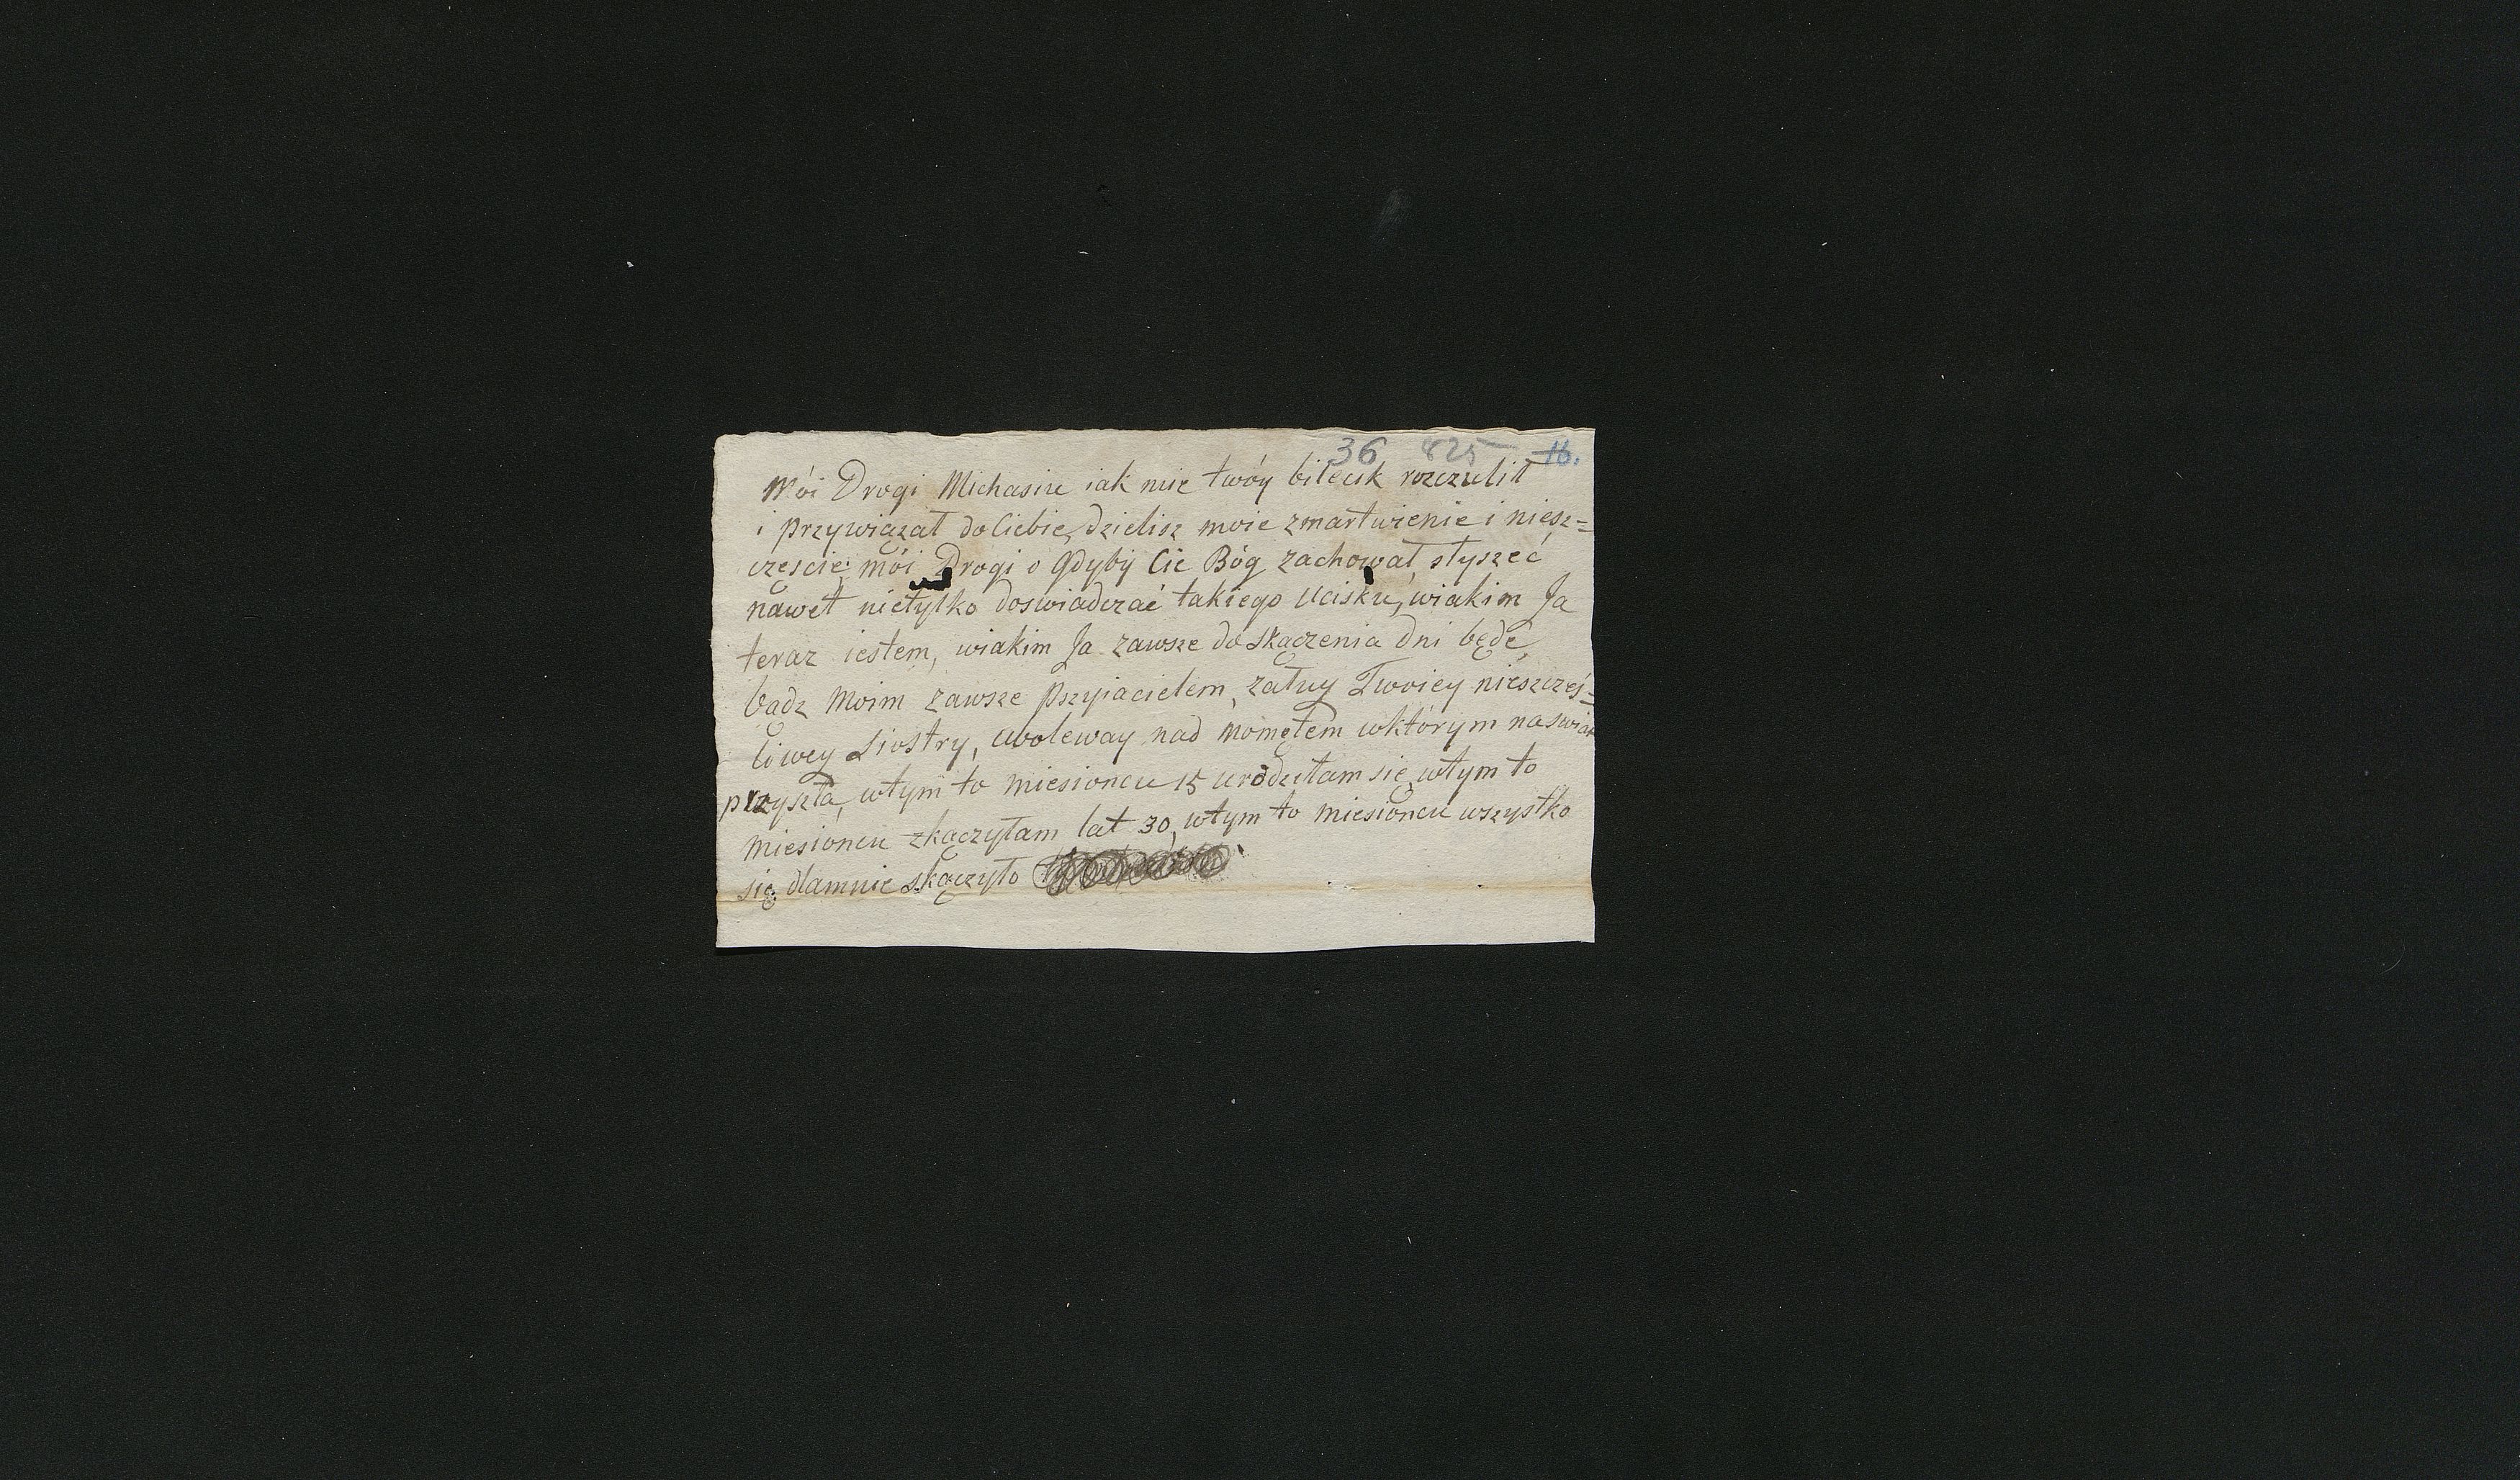 36 825 16.
Mói Drogi Michasiu iak mie twóy bilecik rozczulił
i przywiązał do Ciebie, dzielisz moie zmartwienie i niesz=
częscie, mói Drogi o gdyby Cie Bóg zachował, słyszeć
nawet nietylko doswiadczać takiego Ucisku, wiakim Ja
teraz iestem, wiakim Ja zawsze do skączenia dni będę,
bądz Moim zawsze przyiacielem, załuy Twoiey nieszczęś=
liwey Siostry, uboleway nad momętem wktórym na swiat
przyszła, wtym to miesioncu 15 urodziłam się, wtym to
miesioncu zkączyłam lat 30, wtym to miesioncu wszystko
się dlamnie skączyło